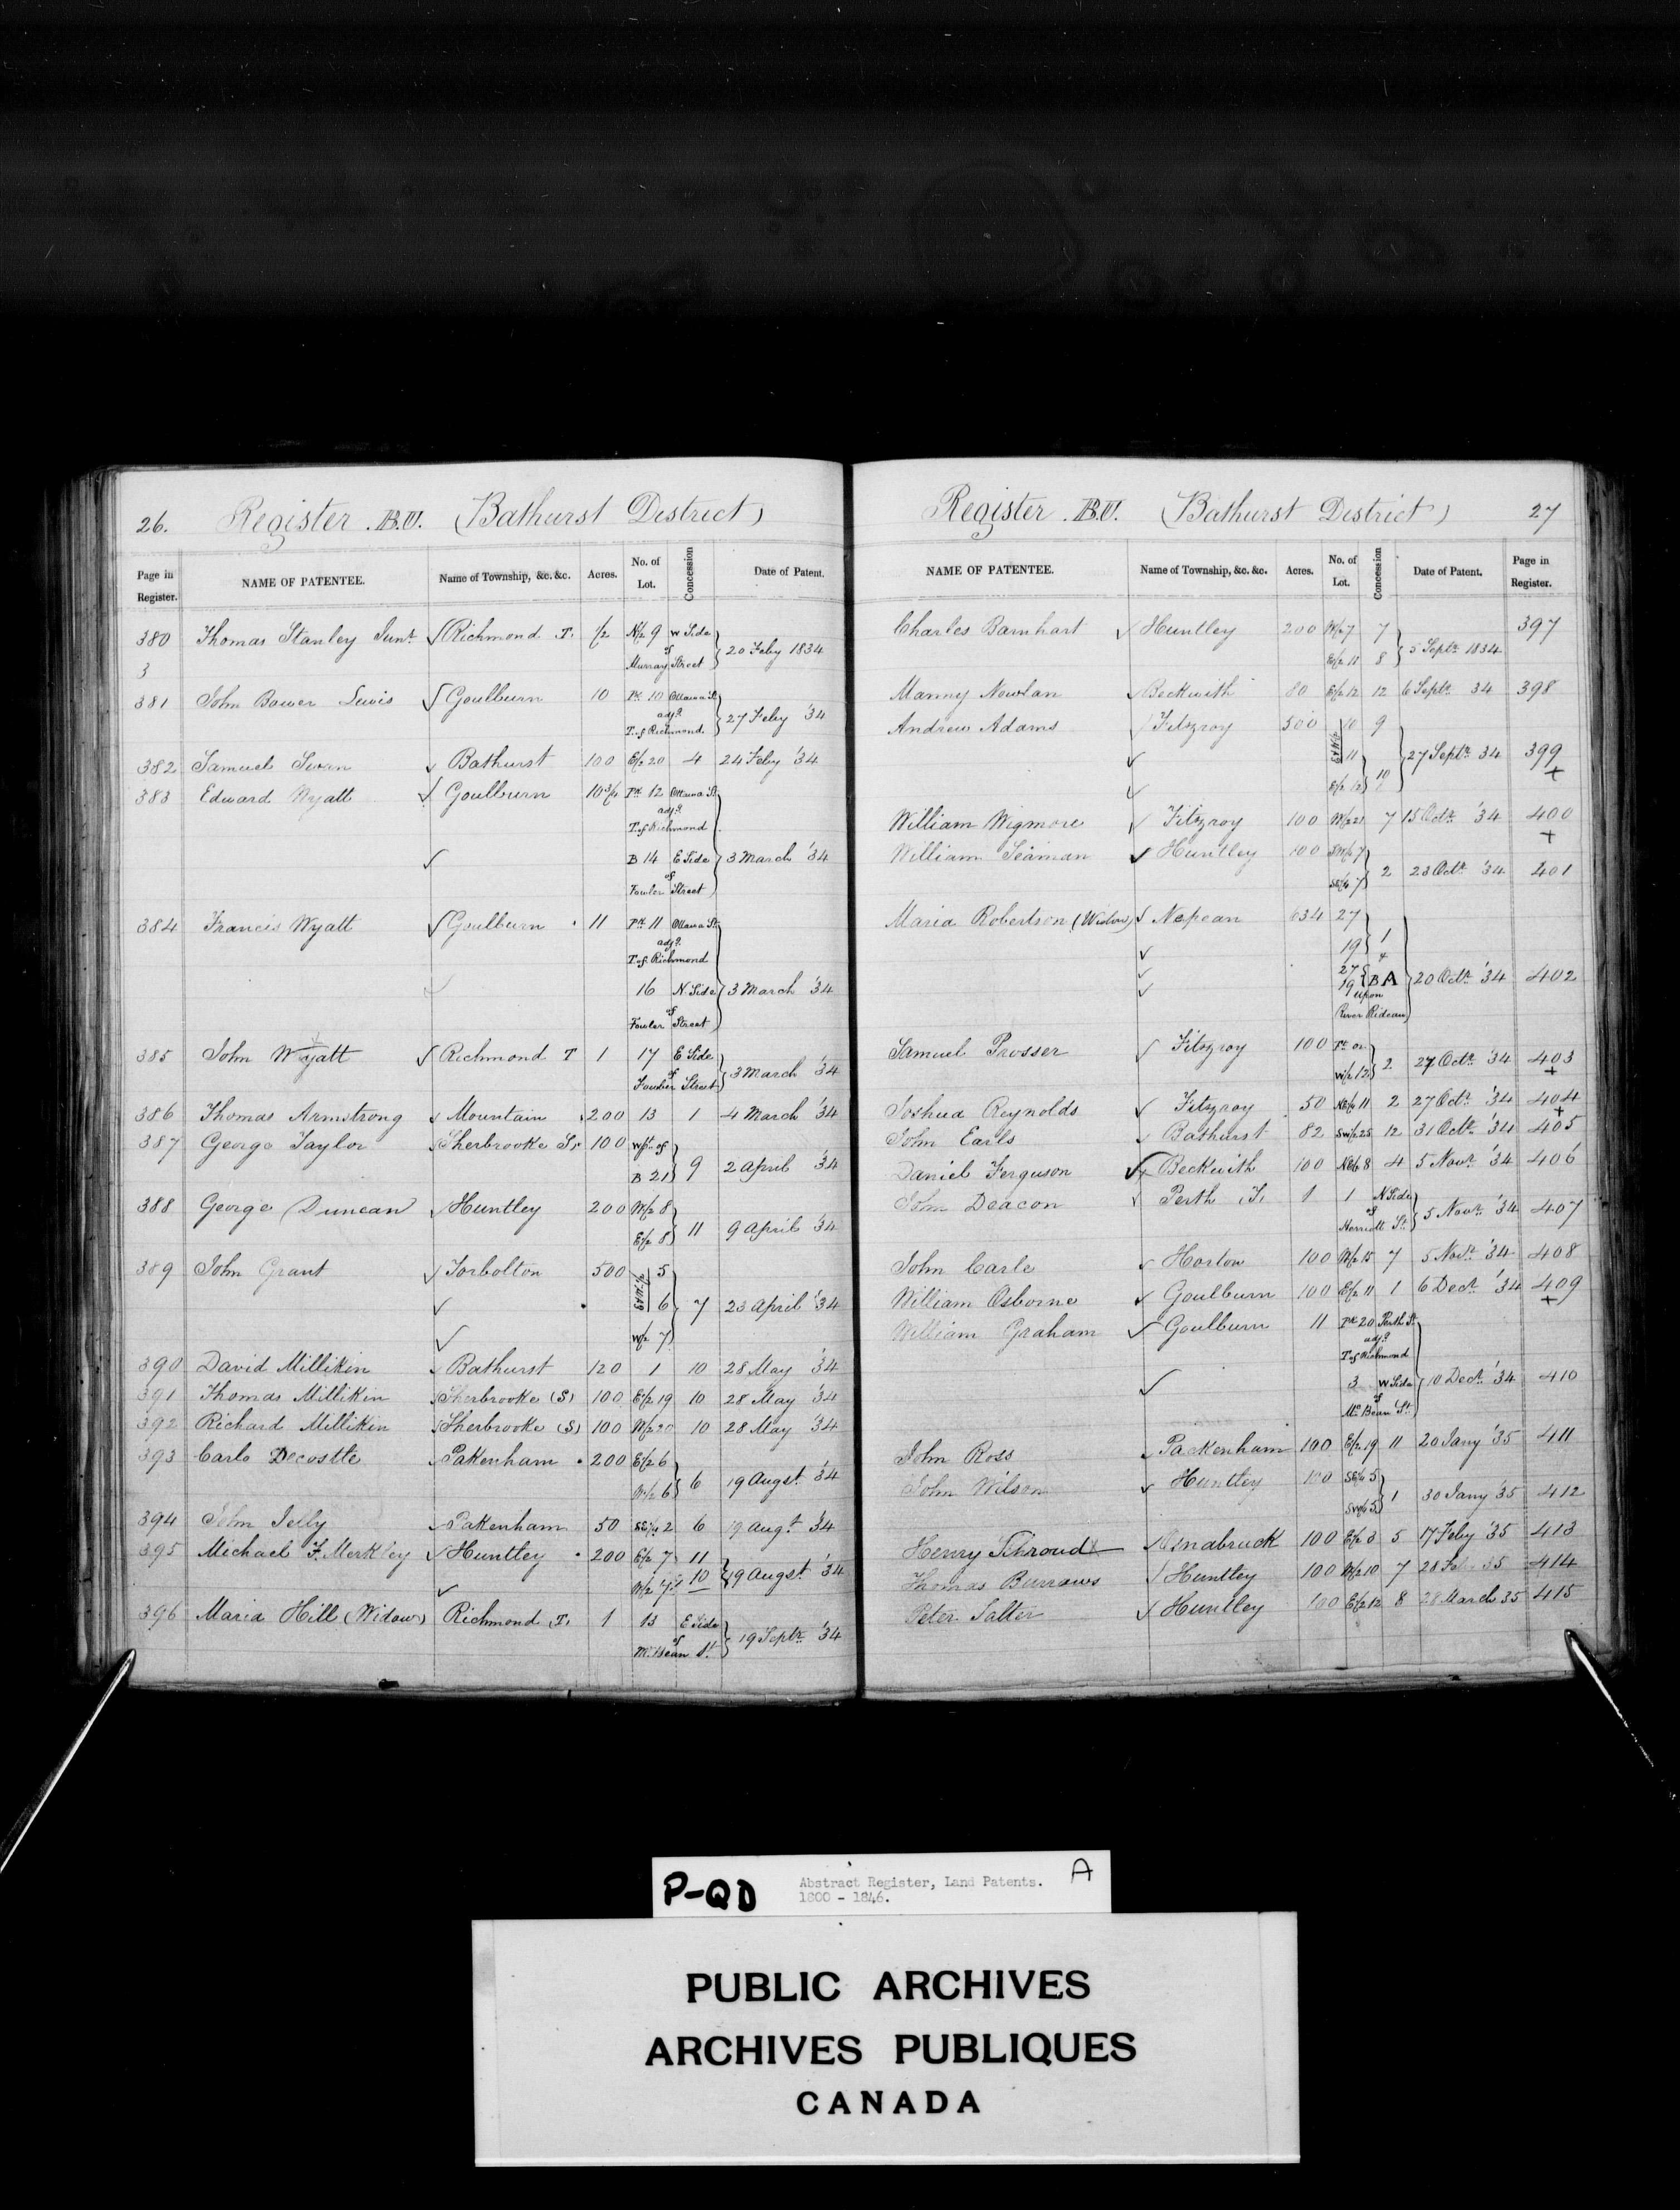 26. Register .B.U. (Bathurst District)
Page in Register. NAME OF PATENTEE. Name of Township, &c. &c. Acres. No. of Lot. Concession Date of Patent.
380 Thomas Stanley Junr. Richmond T. 1/2 N/2 9 W Side
3 of Murray Street 20 Feby 1834
381 John Bower Lewis Goulburn 10 Pt. 10 Ottawa St.
adjg. T. of Richmond 27 Feby '34
382 Samuel Swan Bathurst 100 E/2 20 4 24 Feby '34
383 Edward Wyatt Goulburn Pt. 12 Ottawa St.
adjg. T. of Richmond
B 14 E Side 3 March '34
of Fowler Street
384 Francis Wyatt Goulburn 11 Pt. 11 Ottawa St.
adjg. T. of Richmond
16 N Side 3 March '34
of Fowler Street
385 John Wyatt Richmond T 1 17 E Side
of Fowler Street 3 March '34
386 Thomas Armstrong Mountain 200 13 1 4 March '34
387 George Taylor Sherbrooke S. 100 W pt. of
B 21 9 2 April '34
388 George Duncan Huntley 200 W/2 8
E/2 8 11 9 April '34
389 John Grant Torbolton 500 E & W/2 5
6 7 23 April '34
W/2 7
390 David Millikin Bathurst 120 1 10 28 May '34
391 Thomas Millikin Sherbrooke (S) 100 E/2 19 10 28 May '34
392 Richard Millikin Sherbrooke (S) 100 W/2 20 10 28 May '34
393 Carlo Decostte Pakenham 200 E/2 6
W/2 6 6 19 Augst. '34
394 John Jelly Pakenham 50 SE/4 2 6 19 Augt. '34
395 Michael F. Merkley Huntley 200 E/2 7 11
W/2 7 10 19 Augst '34
396 Maria Hill (Widow) Richmond T. 1 13 E Side
of McBean St. 19 Septr. '34
Register .B.U. (Bathurst District) 27
NAME OF PATENTEE. Name of Township, &c. &c. Acres. No. of Lot. Concession Date of Patent. Page in Register.
Charles Barnhart Huntley 200 W/2 7 7 397
E/2 11 8 5 Septr. 1834
Manny Nowlan Beckwith 80 E/2 12 12 6 Septr. 34 398
Andrew Adams Fitzroy 500 10 9
E & W/2 11 27 Septr. 34 399
E/2 12 10 +
William Wigmore Fitzroy 100 W/2 21 7 15 Octr. '34 400
+
William Seaman Huntley 100 SW/4 7
SE/4 7 2 23 Octr. '34 401
Maria Robertson (Widow) Nepean 634 27
19 1
27 & 19 B A 20 Octr. '34 402
upon River Rideau
Samuel Prosser Fitzroy 100 Pt. or
W/2 12 2 27 Octr. '34 403
+
Joshua Reynolds Fitzroy 50 NE/4 11 2 27 Octr. '34 404
+
John Earls Bathurst 82 SW/2 25 12 31 Octr. '34 405
Daniel Ferguson Beckwith 100 NE/2 8 4 5 Novr. '34 406
John Deacon Perth T. 1 1 N Side
of Herriott St. 5 Novr. '34 407
John Carle Horton 100 W/2 15 7 5 Novr. '34 408
William Osborne Goulburn 100 E/2 11 1 6 Decr. '34 409
+
William Graham Goulburn 11 Pt. 20 Perth St.
adjg. T. of Richmond
3 W Side 10 Decr. '34 410
of McBean St.
John Ross Packenham 100 E/2 19 11 20 Jany '35 411
John Wilson Huntley 100 SE/4 5
SW/4 5 1 30 Jany '35 412
Henry Sthroud Osnabruck 100 E/2 3 5 17 Feby '35 413
Thomas Burrows Huntley 100 W/2 10 7 28 35 414
Peter Salter Huntley 100 E/2 12 8 28 March 35 415
P-QD Abstract Register, Land Patents. A
1800 - 1846.
PUBLIC ARCHIVES
ARCHIVES PUBLIQUES
CANADA